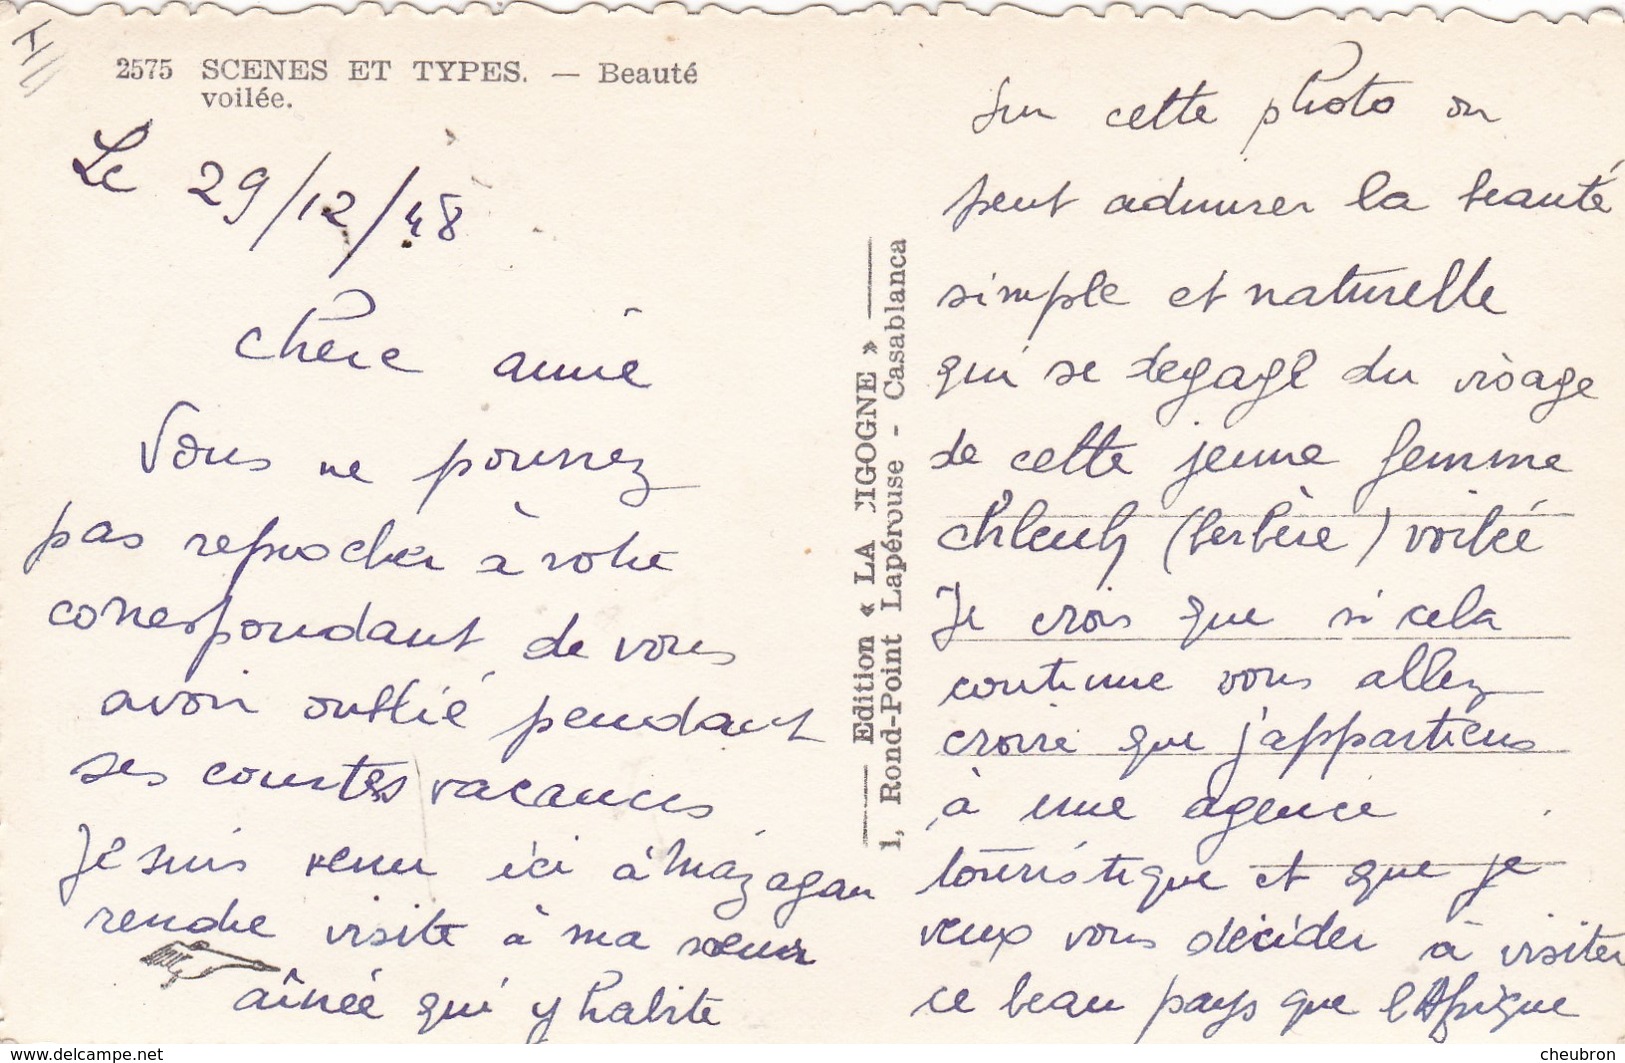 2575 SCENES ET TYPES. — Beauté
voilée.
Le 29/12/48
Chère amie
Vous ne pourrez
pas reprocher à votre
correspondant de vous
avoir oublié pendant
ses courtes vacances
Je suis venu ici à Mazagan
rendre visite à ma sœur
aînée qui y habite
Edition « LA CIGOGNE »
1, Rond-Point Lapérouse - Casablanca
Sur cette photo on
peut admirer la beauté
simple et naturelle
qui se dégage du visage
de cette jeune femme
chleuh (berbère) voilée
Je crois que si cela
continue vous allez
croire que j'appartiens
à une agence
touristique et que je
veux vous décider à visiter
ce beau pays que l'Afrique
www.delcampe.net
cheubron